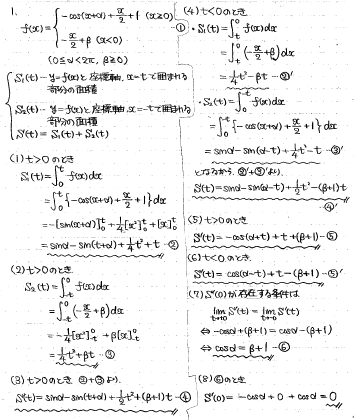 1.
f(x) = { -cos(x+α) + x/2 + 1 (x≧0)
-x/2 + β (x<0) —①
(0≦α<2π, β≧0)
S₁(t)… y=f(x)と座標軸, x=tで囲まれる
部分の面積
S₂(t)… y=f(x)と座標軸, x=-tで囲まれる
部分の面積
S(t) = S₁(t) + S₂(t)
(1) t>0のとき
S₁(t) = ∫₀ᵗ f(x)dx
= ∫₀ᵗ { -cos(x+α) + x/2 + 1 } dx
= -[sin(x+α)]₀ᵗ + 1/4[x²]₀ᵗ + [x]₀ᵗ
= sinα - sin(t+α) + 1/4 t² + t —②
(2) t>0のとき
S₂(t) = ∫₋ₜ⁰ f(x)dx
= ∫₋ₜ⁰ (-x/2 + β) dx
= -1/4[x²]₋ₜ⁰ + β[x]₋ₜ⁰
= 1/4 t² + βt —③
(3) t>0のとき ②+③より,
S(t) = sinα - sin(t+α) + 1/2 t² + (β+1)t —④
(4) t<0のとき
・S₁(t) = ∫ₜ⁰ f(x)dx
= ∫ₜ⁰ (-x/2 + β) dx
= 1/4 t² - βt —②'
・S₂(t) = ∫₀⁻ᵗ f(x)dx
= ∫₀⁻ᵗ { -cos(x+α) + x/2 + 1 } dx
= sinα - sin(α-t) + 1/4 t² - t —③'
となるから, ②'+③'より,
S(t) = sinα - sin(α-t) + 1/2 t² - (β+1)t
—④'
(5) t>0のとき
S'(t) = -cos(α+t) + t + (β+1) —⑤
(6) t<0のとき
S'(t) = cos(α-t) + t - (β+1) —⑤'
(7) S'(0)が存在する条件は
lim t→+0 S'(t) = lim t→-0 S'(t)
⇔ -cosα + (β+1) = cosα - (β+1)
⇔ cosα = β+1 —⑥
(8) ⑥のとき
S'(0) = -cosα + 0 + cosα = 0